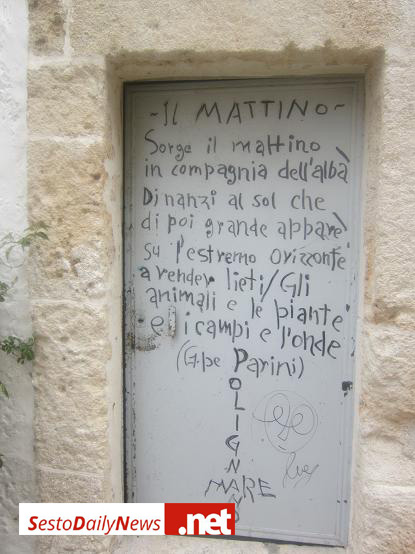 ~IL MATTINO~
Sorge il mattino
in compagnia dell'albà
Dinanzi al sol che
di poi grande apparè
su l'estremo orizzontè
a render lieti/Gli
animali e le piante
e i campi e l'onde
(G.pe Parini)
OLIGNA
MARE
SestoDailyNews.net